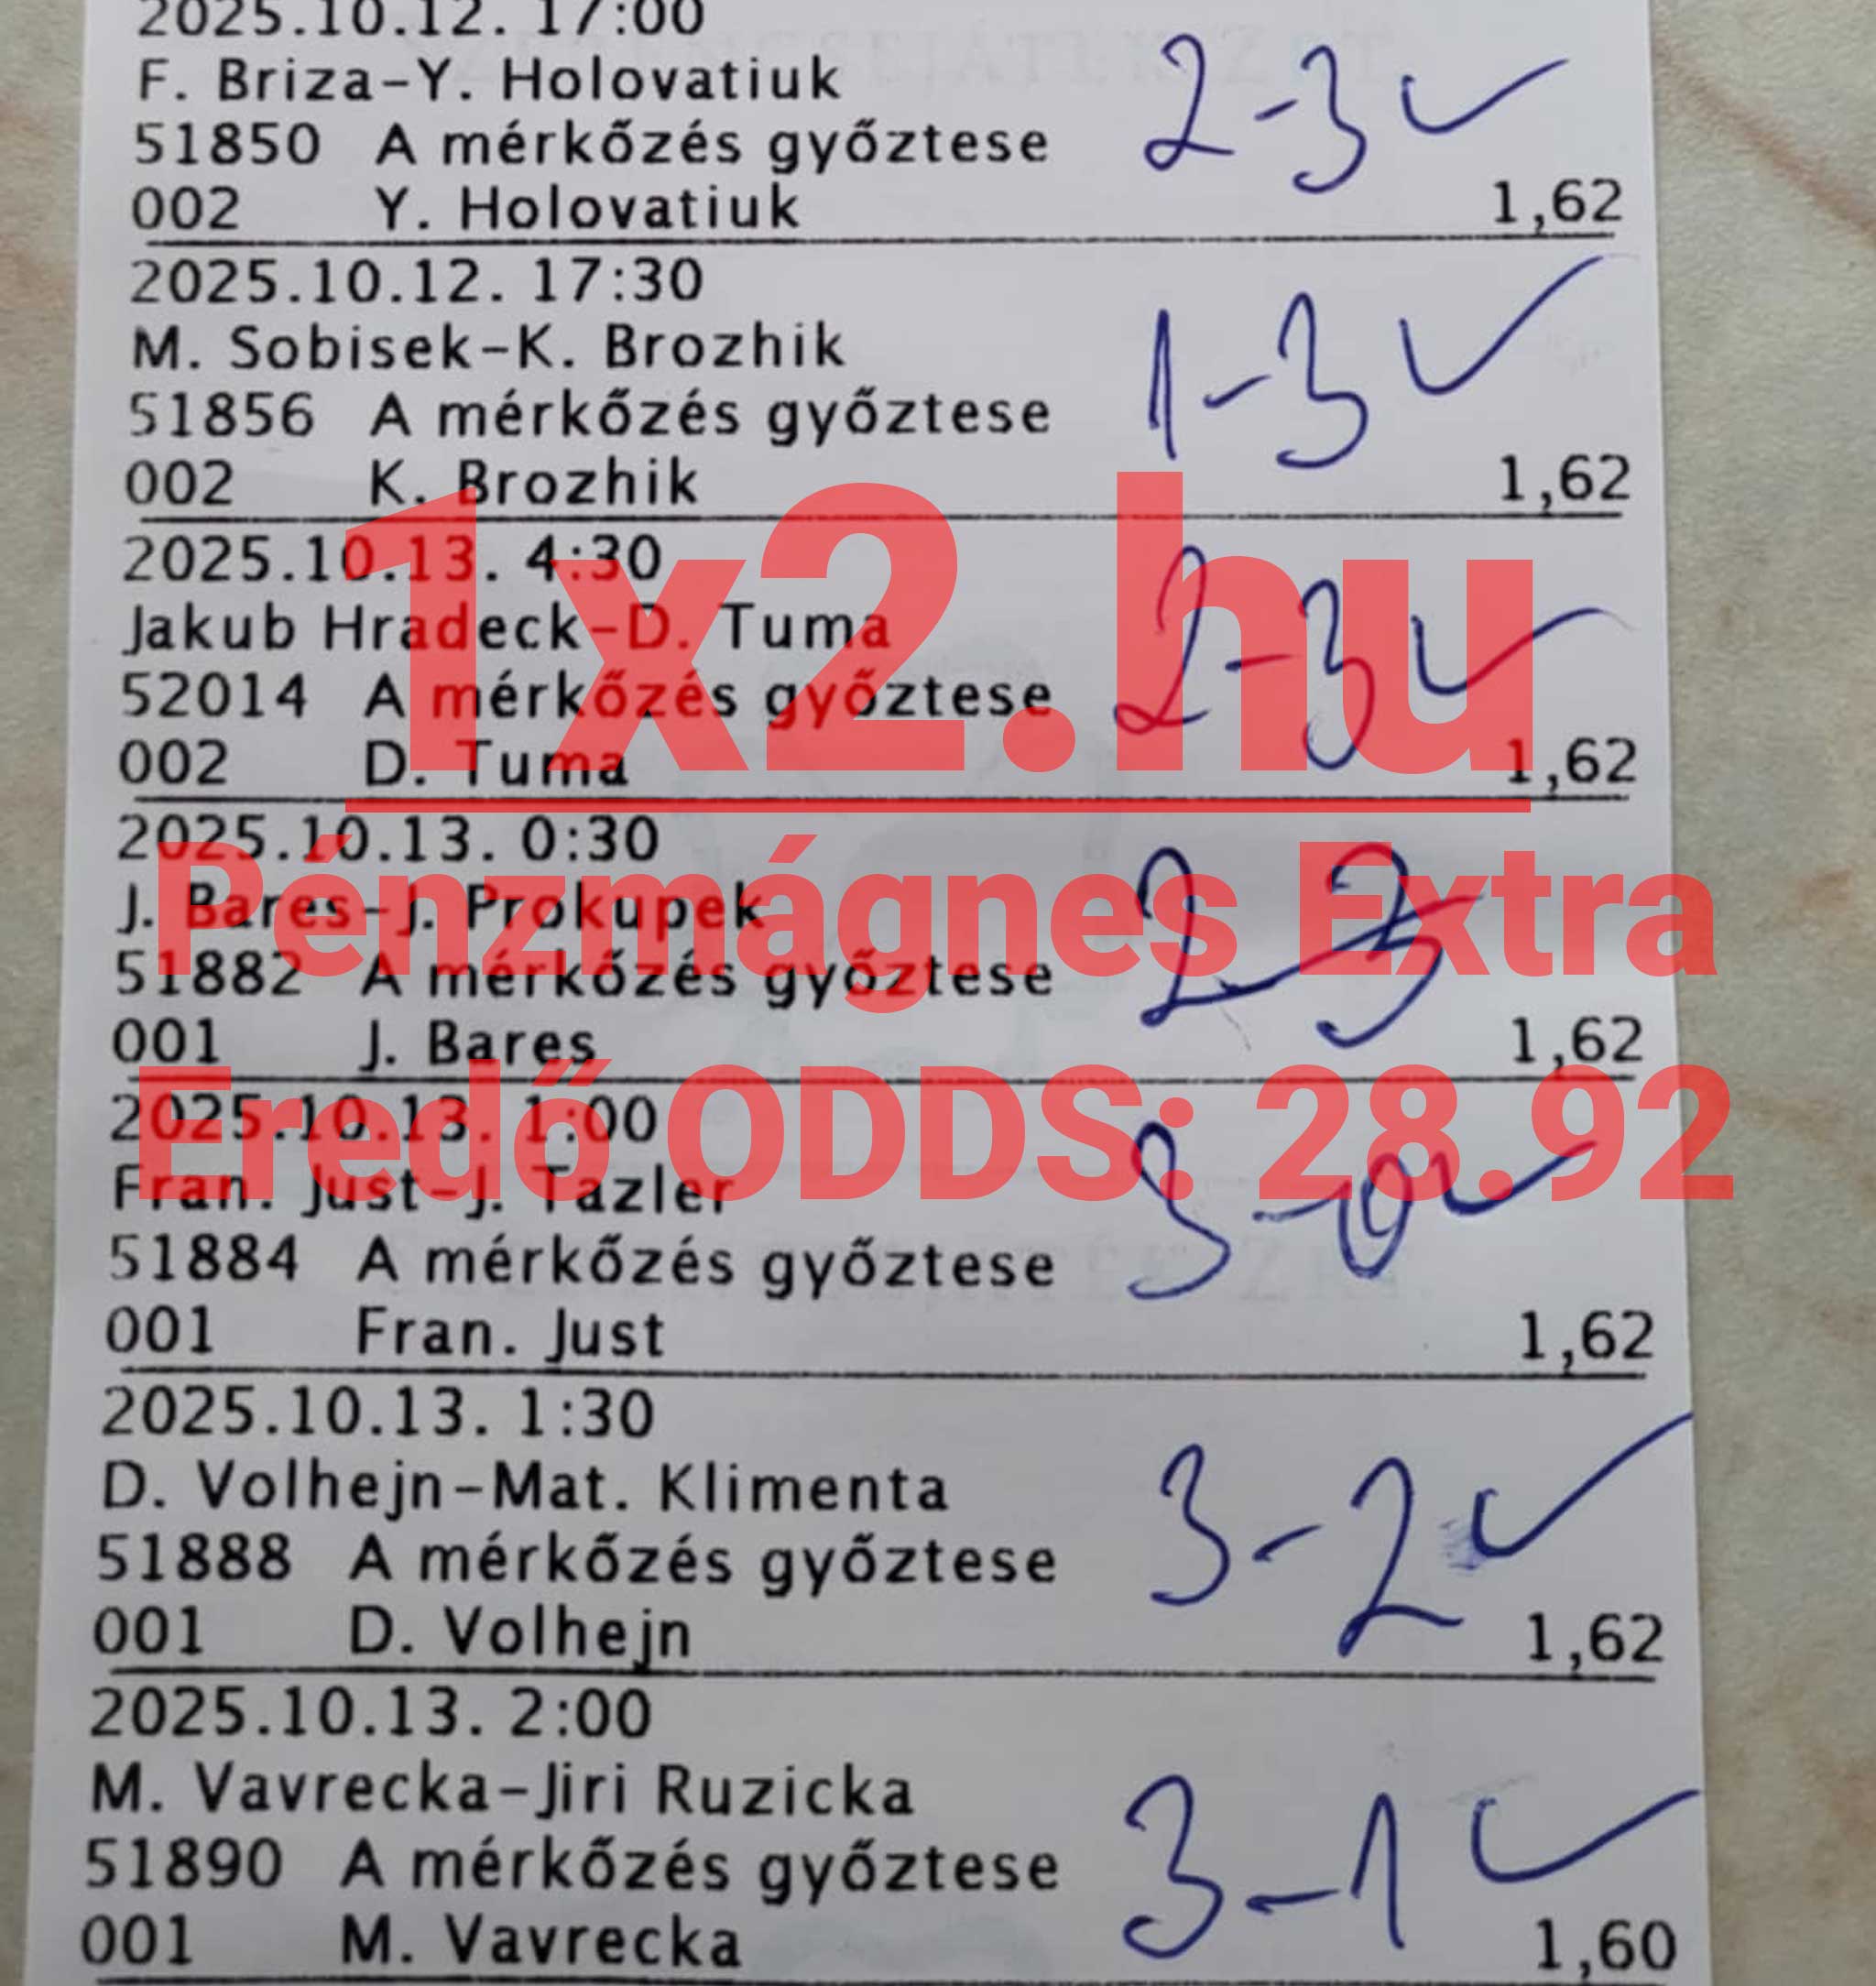 2025.10.12. 17:00
F. Briza-Y. Holovatiuk
51850 A mérkőzés győztese 2-3
002 Y. Holovatiuk 1,62
2025.10.12. 17:30
M. Sobisek-K. Brozhik
51856 A mérkőzés győztese 1-3
002 K. Brozhik 1,62
2025.10.13. 4:30
Jakub Hradeck-D. Tuma
52014 A mérkőzés győztese 2-3
002 D. Tuma 1,62
1x2.hu
2025.10.13. 0:30
J. Bares-J. Prokupek
51882 A mérkőzés győztese 2-3
001 J. Bares 1,62
Pénzmágnes Extra
2025.10.13. 1:00
Fran. Just-J. Tazler
51884 A mérkőzés győztese 3-0
001 Fran. Just 1,62
Eredő ODDS: 28.92
2025.10.13. 1:30
D. Volhejn-Mat. Klimenta
51888 A mérkőzés győztese 3-2
001 D. Volhejn 1,62
2025.10.13. 2:00
M. Vavrecka-Jiri Ruzicka
51890 A mérkőzés győztese 3-1
001 M. Vavrecka 1,60